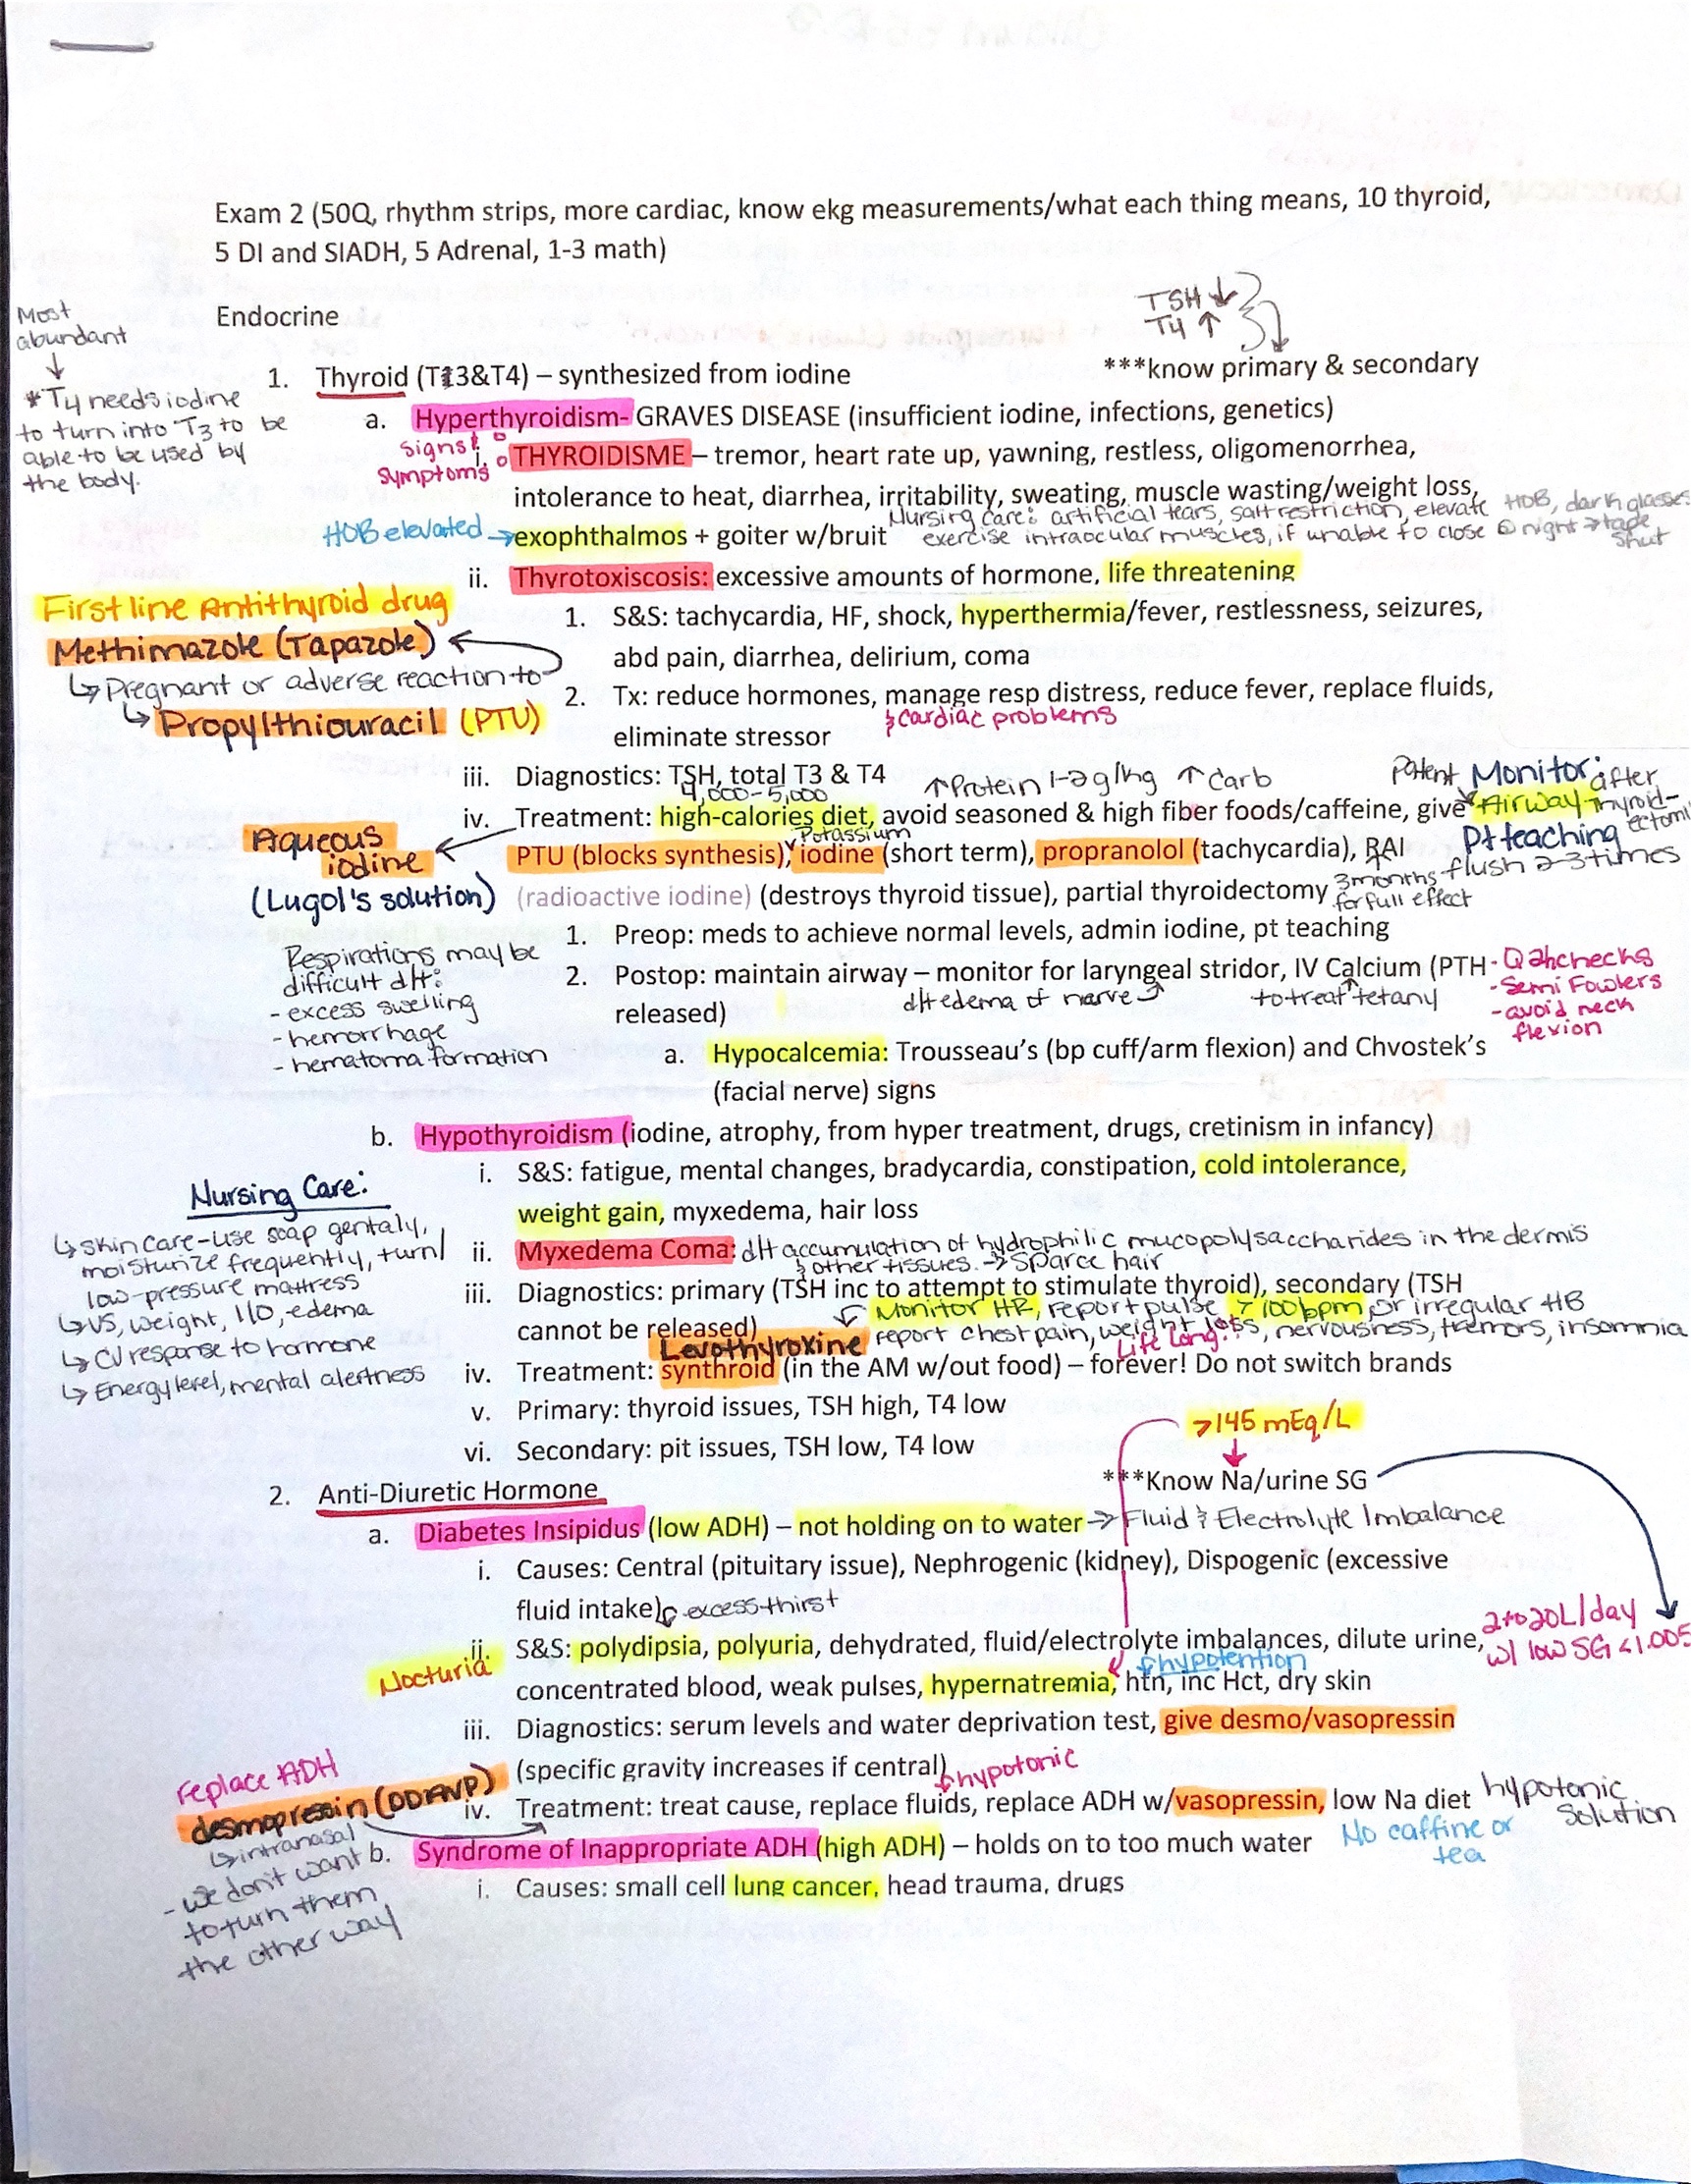 Exam 2 (50Q, rhythm strips, more cardiac, know ekg measurements/what each thing means, 10 thyroid,
5 DI and SIADH, 5 Adrenal, 1-3 math)
Most
abundant
↓
* T4 needs iodine
to turn into T3 to be
able to be used by
the body.
Endocrine
TSH ↓
T4 ↑
***know primary & secondary
1. Thyroid (T13&T4) – synthesized from iodine
a. Hyperthyroidism- GRAVES DISEASE (insufficient iodine, infections, genetics)
Signs &
Symptoms
i. THYROIDISME – tremor, heart rate up, yawning, restless, oligomenorrhea,
intolerance to heat, diarrhea, irritability, sweating, muscle wasting/weight loss,
HOB elevated →
exophthalmos + goiter w/bruit
Nursing care: artificial tears, salt restriction, elevate HOB, dark glasses
exercise intraocular muscles, if unable to close @ night → tape
shut
ii. Thyrotoxiscosis: excessive amounts of hormone, life threatening
First line Antithyroid drug
Methimazole (Tapazole)
↳ Pregnant or adverse reaction to
↳ Propylthiouracil (PTU)
1. S&S: tachycardia, HF, shock, hyperthermia/fever, restlessness, seizures,
abd pain, diarrhea, delirium, coma
2. Tx: reduce hormones, manage resp distress, reduce fever, replace fluids,
& cardiac problems
eliminate stressor
iii. Diagnostics: TSH, total T3 & T4
4,000-5,000
↑ Protein 1-2 g/kg ↑ Carb
Patent Monitor after
Airway Thyroid-
ectomy
iv. Treatment: high-calories diet, avoid seasoned & high fiber foods/caffeine, give
Potassium
PTU (blocks synthesis), iodine (short term), propranolol (tachycardia), RAI
Pt teaching
flush 2-3 times
Aqueous
iodine
(Lugol's solution)
(radioactive iodine) (destroys thyroid tissue), partial thyroidectomy
3 months
for full effect
1. Preop: meds to achieve normal levels, admin iodine, pt teaching
2. Postop: maintain airway – monitor for laryngeal stridor, IV Calcium (PTH
d/t edema of nerve
to treat tetany
released)
- Q2h checks
- Semi Fowlers
- avoid neck
flexion
Respirations may be
difficult d/t:
- excess swelling
- hemorrhage
- hematoma formation
a. Hypocalcemia: Trousseau's (bp cuff/arm flexion) and Chvostek's
(facial nerve) signs
b. Hypothyroidism (iodine, atrophy, from hyper treatment, drugs, cretinism in infancy)
i. S&S: fatigue, mental changes, bradycardia, constipation, cold intolerance,
weight gain, myxedema, hair loss
Nursing Care:
↳ skin care-use soap gentaly,
moisturize frequently, turn/
low-pressure mattress
↳ VS, weight, I/O, edema
↳ CV response to hormone
↳ Energy level, mental alertness
ii. Myxedema Coma: d/t accumulation of hydrophilic mucopolysaccharides in the dermis
& other tissues. → sparce hair
iii. Diagnostics: primary (TSH inc to attempt to stimulate thyroid), secondary (TSH
cannot be released)
Monitor HR, report pulse > 100 bpm or irregular HB
report chest pain, weight loss, nervousness, tremors, insomnia
Levothyroxine
Life long!
iv. Treatment: synthroid (in the AM w/out food) – forever! Do not switch brands
v. Primary: thyroid issues, TSH high, T4 low
vi. Secondary: pit issues, TSH low, T4 low
>145 mEq/L
↓
***Know Na/urine SG
2. Anti-Diuretic Hormone
a. Diabetes Insipidus (low ADH) – not holding on to water → Fluid & Electrolyte Imbalance
i. Causes: Central (pituitary issue), Nephrogenic (kidney), Dispogenic (excessive
fluid intake) excess thirst
Nocturia
ii. S&S: polydipsia, polyuria, dehydrated, fluid/electrolyte imbalances, dilute urine,
2 to 20L/day
w/ low SG <1.005
hypotention
concentrated blood, weak pulses, hypernatremia, htn, inc Hct, dry skin
iii. Diagnostics: serum levels and water deprivation test, give desmo/vasopressin
(specific gravity increases if central)
hypotonic
replace ADH
desmopressin (DDAVP)
↳ intranasal
- we don't want
to turn them
the other way
iv. Treatment: treat cause, replace fluids, replace ADH w/vasopressin, low Na diet
hypotonic
Solution
No caffine or
tea
b. Syndrome of Inappropriate ADH (high ADH) – holds on to too much water
i. Causes: small cell lung cancer, head trauma, drugs